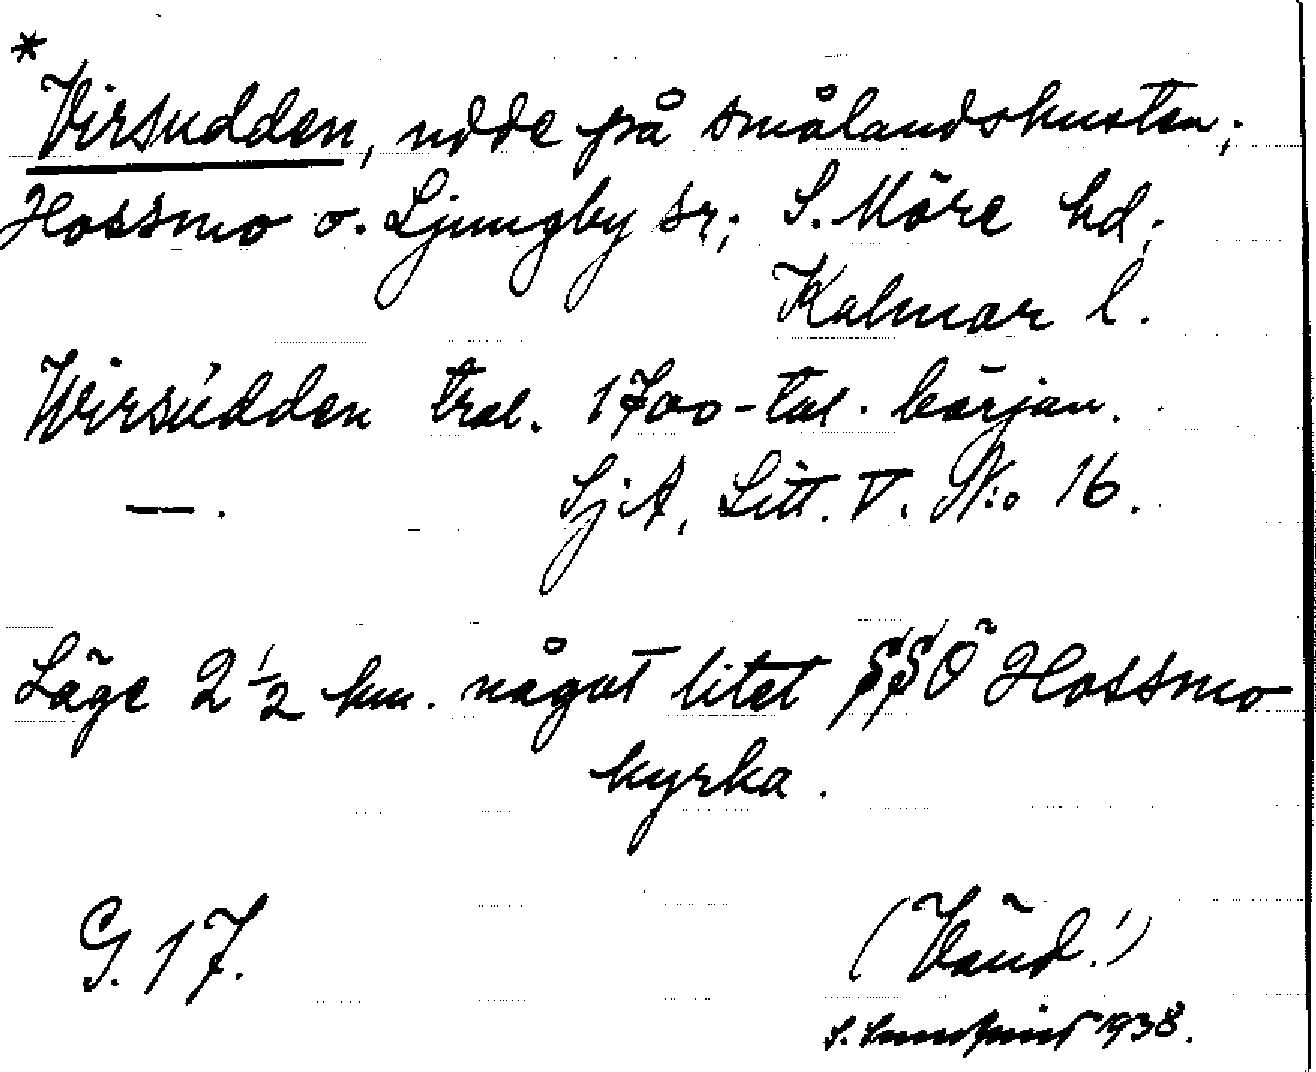 *
Virsudden, udde på smålandskusten;
Hossmo o. Ljungby sr; S. Möre hd;
Kalmar l.
Wirsúdden trol. 1700-tal. början.
— . SjA, Litt. V. N:o 16.
Läge 2 ½ km. något litet SSÖ Hossmo
kyrka.
G. 17. (Vänd!)
S. 1938.